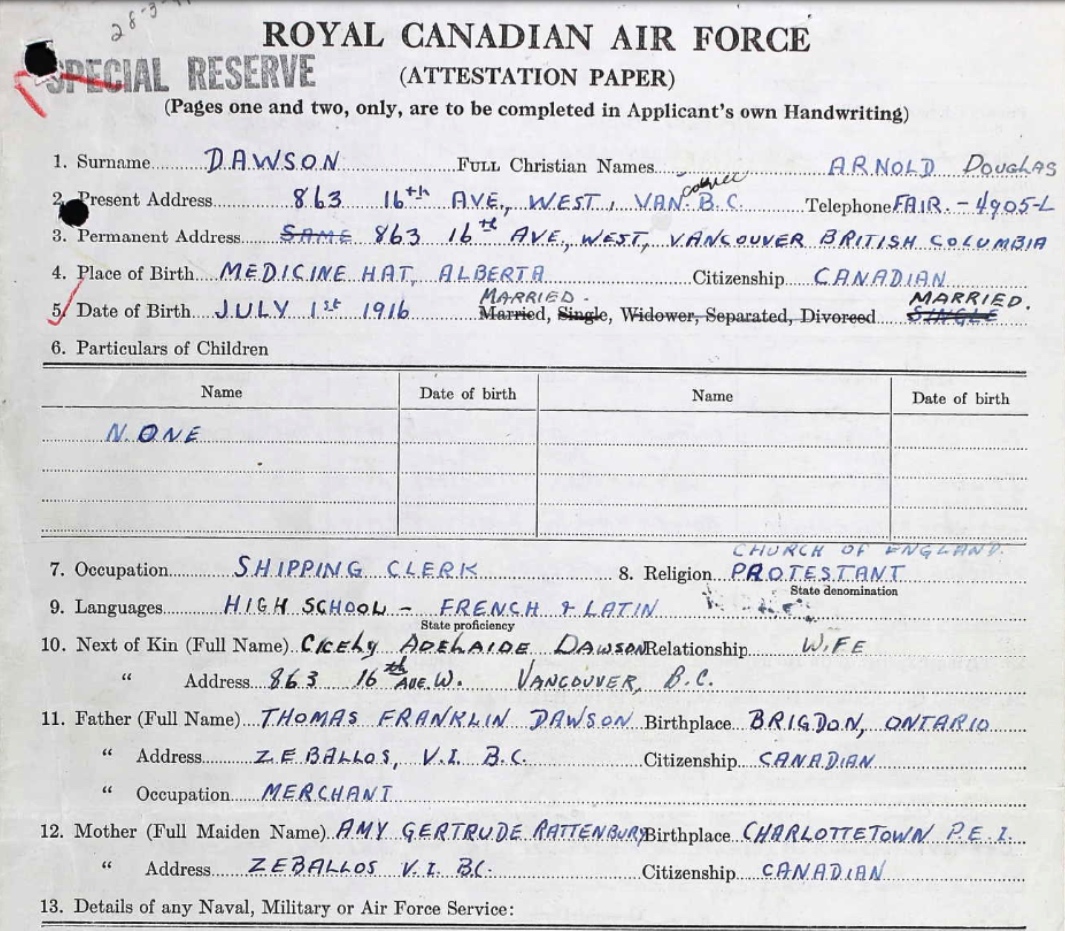 28-3-
ROYAL CANADIAN AIR FORCE
SPECIAL RESERVE
(ATTESTATION PAPER)
(Pages one and two, only, are to be completed in Applicant's own Handwriting)
1. Surname DAWSON FULL Christian Names ARNOLD DOUGLAS
2. Present Address 863 16th AVE., WEST, VAN. B.C. Telephone FAIR.-4905-L
3. Permanent Address SAME 863 16th AVE., WEST, VANCOUVER BRITISH COLUMBIA
4. Place of Birth MEDICINE HAT, ALBERTA Citizenship CANADIAN
MARRIED. MARRIED.
5. Date of Birth JULY 1st 1916 Married, Single, Widower, Separated, Divorced SINGLE
6. Particulars of Children
Name Date of birth Name Date of birth
NONE
CHURCH OF ENGLAND.
7. Occupation SHIPPING CLERK 8. Religion PROTESTANT
State denomination
9. Languages HIGH SCHOOL - FRENCH & LATIN
State proficiency
10. Next of Kin (Full Name) CICELY ADELAIDE DAWSON Relationship WIFE
" Address 863 16th AVE. W. VANCOUVER, B.C.
11. Father (Full Name) THOMAS FRANKLIN DAWSON Birthplace BRIGDON, ONTARIO
" Address ZEBALLOS, V.I. B.C. Citizenship CANADIAN
" Occupation MERCHANT
12. Mother (Full Maiden Name) AMY GERTRUDE RATTENBURY Birthplace CHARLOTTETOWN P.E.I.
" Address ZEBALLOS V.I. B.C. Citizenship CANADIAN
13. Details of any Naval, Military or Air Force Service: